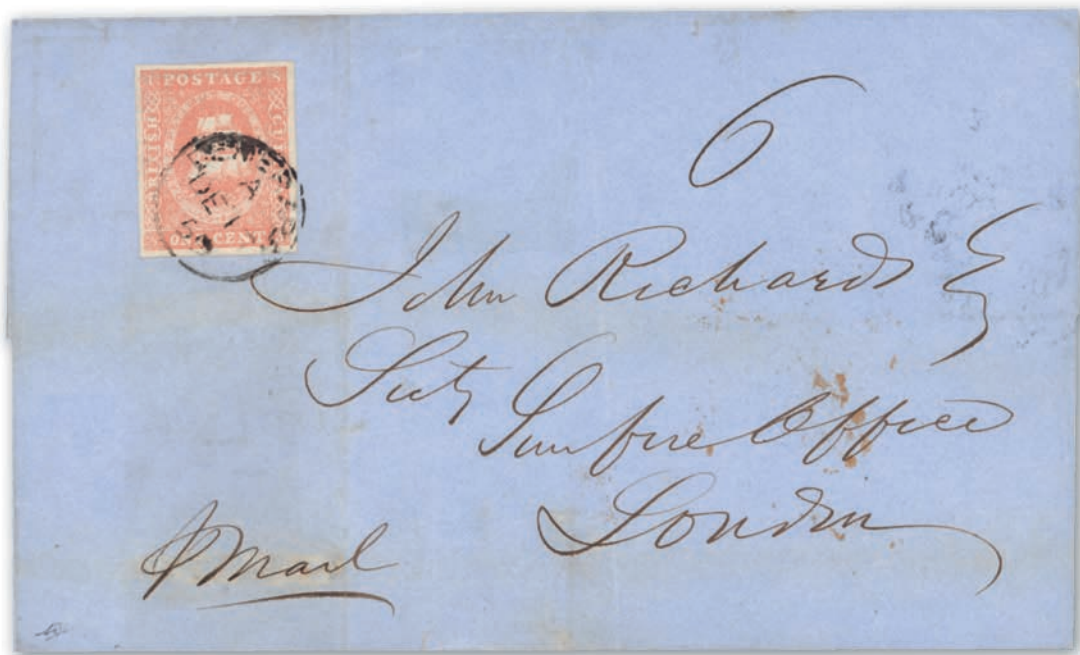 POSTAGE
BRITISH
ONE CENT
DE 1
6
John Richards E
Secty
Sunfire Office
London
p Mail